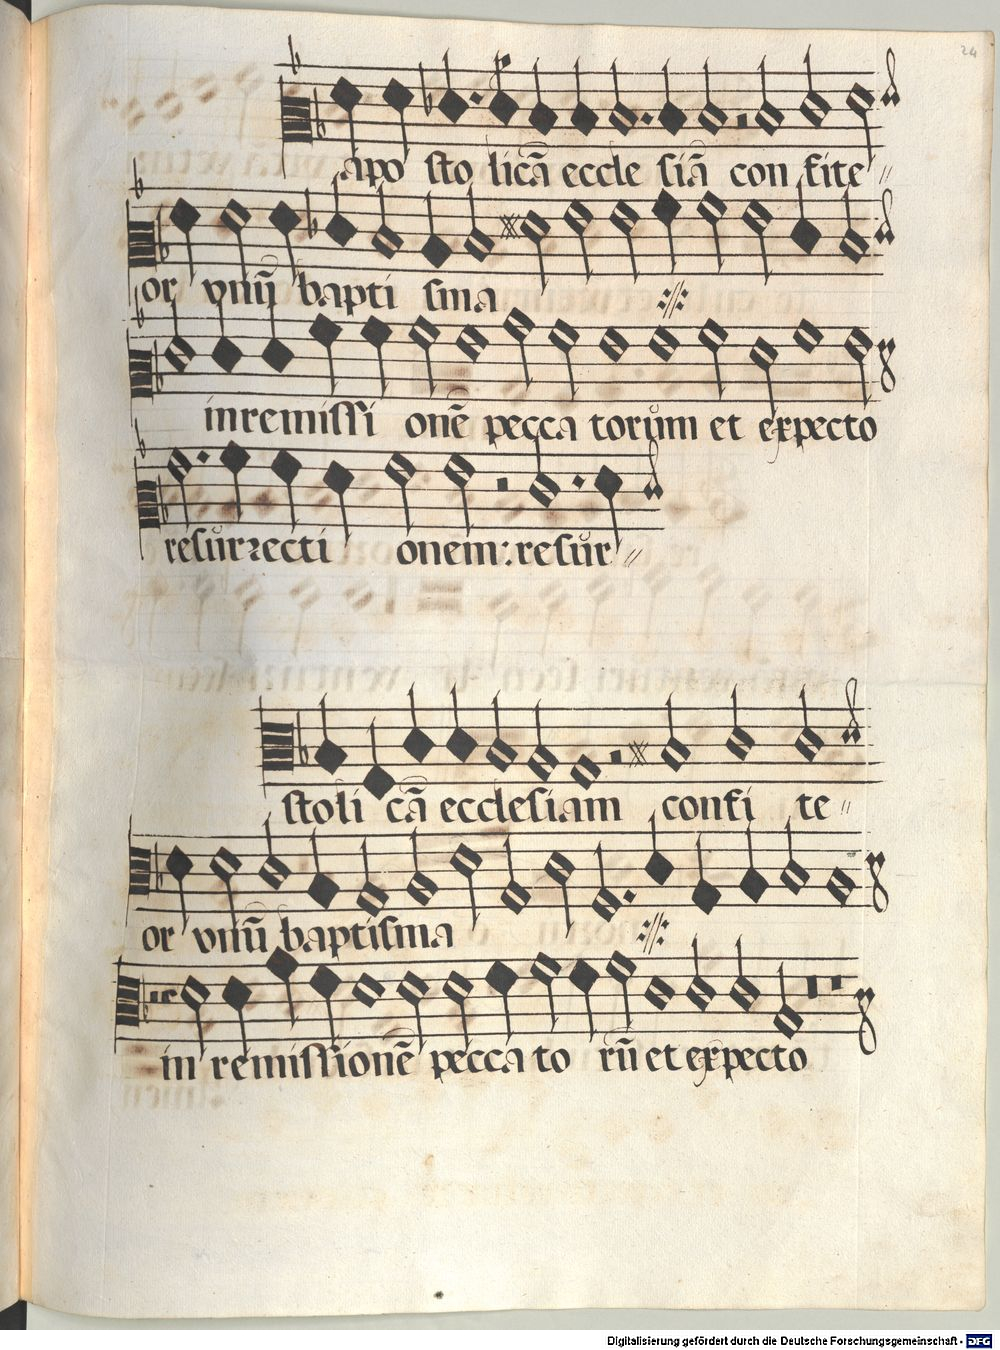 24
apo sto licã eccle siã con fite
or vnuȷ̃ bapti sma
inremissi onẽ pecca torum et expecto
resurrecti onem: resur
stoli cã ecclesiam confi te
or vnuȷ̃ baptisma
in remissionẽ pecca to rũ et expecto
Digitalisierung gefördert durch die Deutsche Forschungsgemeinschaft - DFG